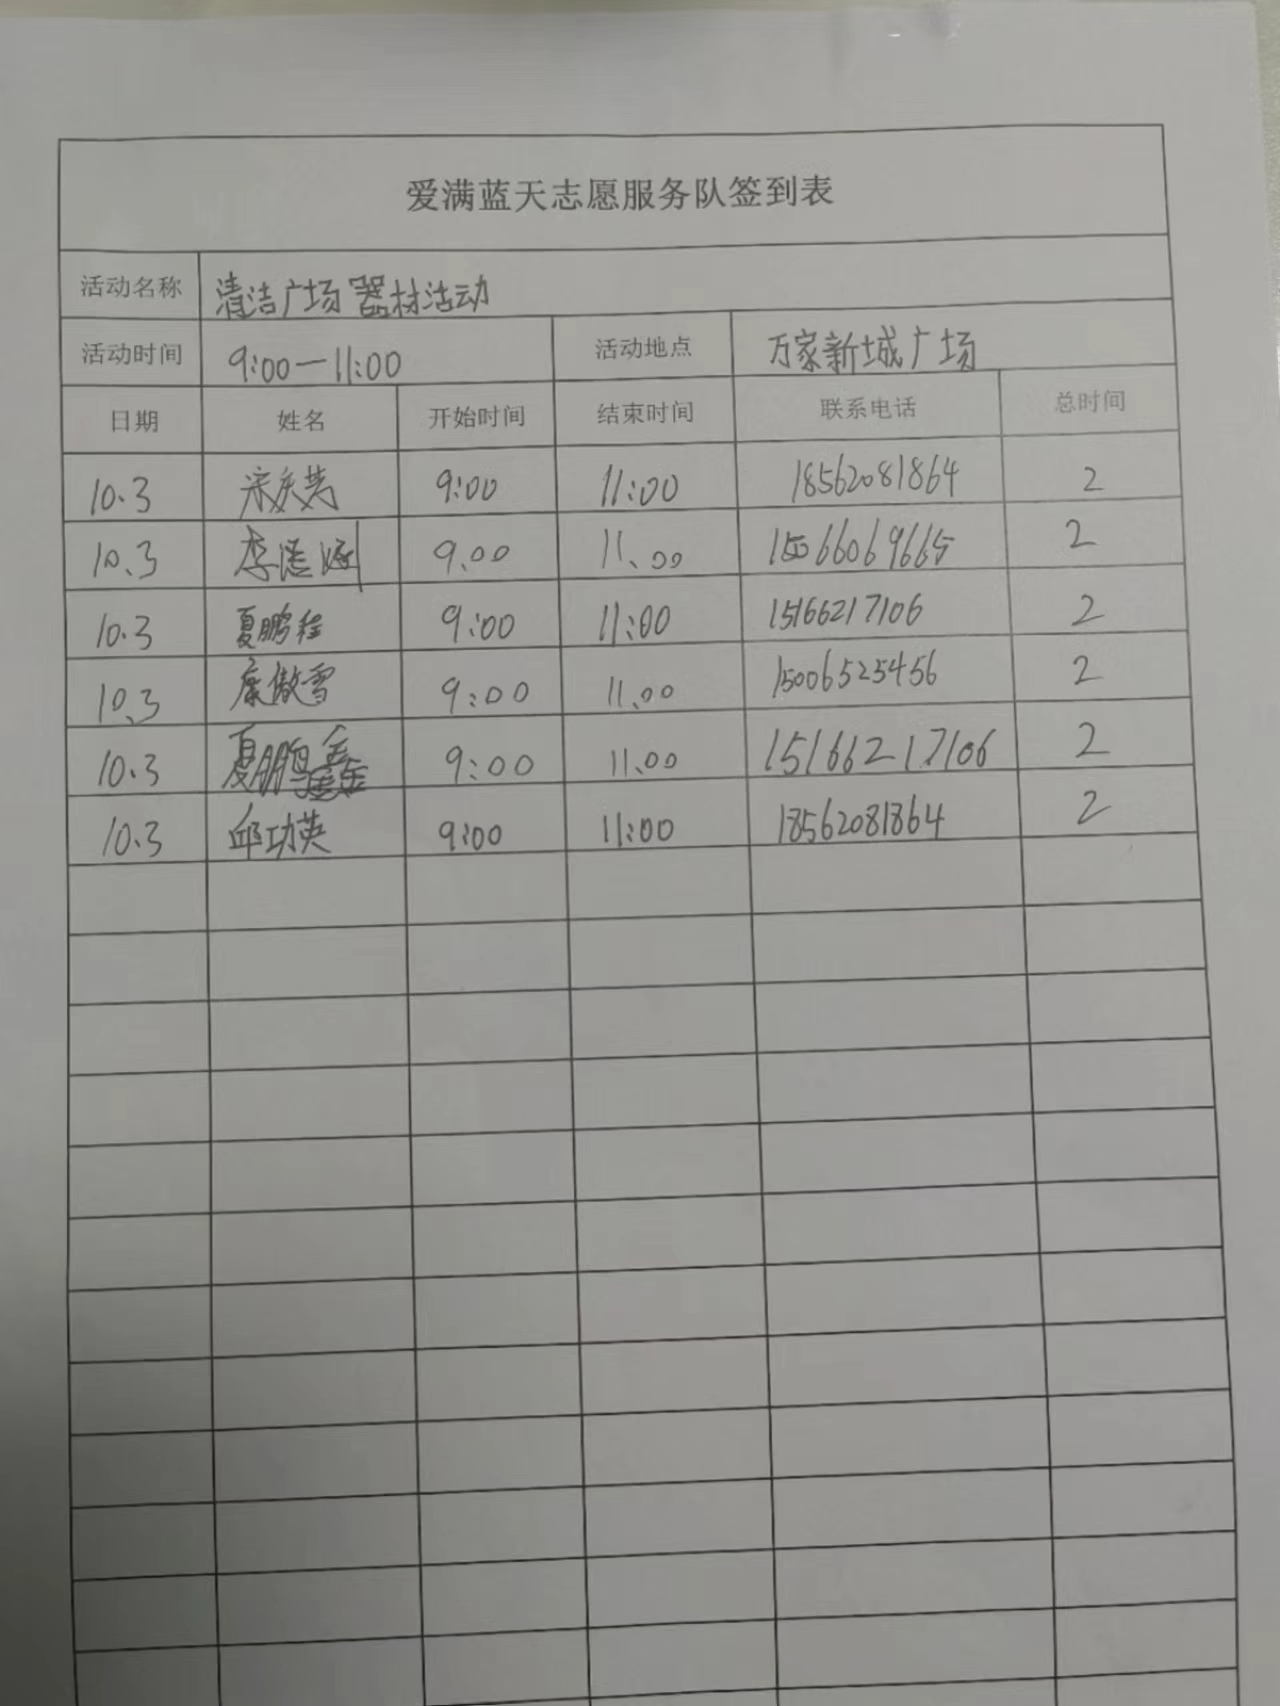 爱满蓝天志愿服务队签到表
活动名称 清洁广场器材活动
活动时间 9:00—11:00 活动地点 万家新城广场
日期 姓名 开始时间 结束时间 联系电话 总时间
10.3 宋庆芳 9:00 11:00 18562081864 2
10.3 李浩涵 9.00 11.00 15066069665 2
10.3 夏鹏程 9:00 11:00 15166217106 2
10.3 康傲雪 9:00 11.00 15006525456 2
10.3 夏鹏鑫 9:00 11.00 15166217106 2
10.3 邱功英 9:00 11:00 18562081864 2